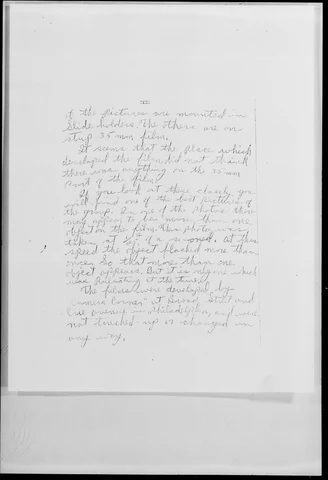 of the pictures are mounted in
slide holders. The others are on
strip 35 mm film.
It seems that the place which
developed the film did not think
there was anything on the 35 mm
part of the film.
If you look at these closely you
will find one of the best pictures of
the group. In one of the photos there
may appear to be more than one
object on the film. This photo was
taken at of a second. At this
speed the object flashed more than
once. So that more than one
object appears. But it is only one which
was pulsating at the time.
The films were developed by
Camera Corner at Broad Street and
in Philadelphia, and were
not touched-up or changed in
any way.